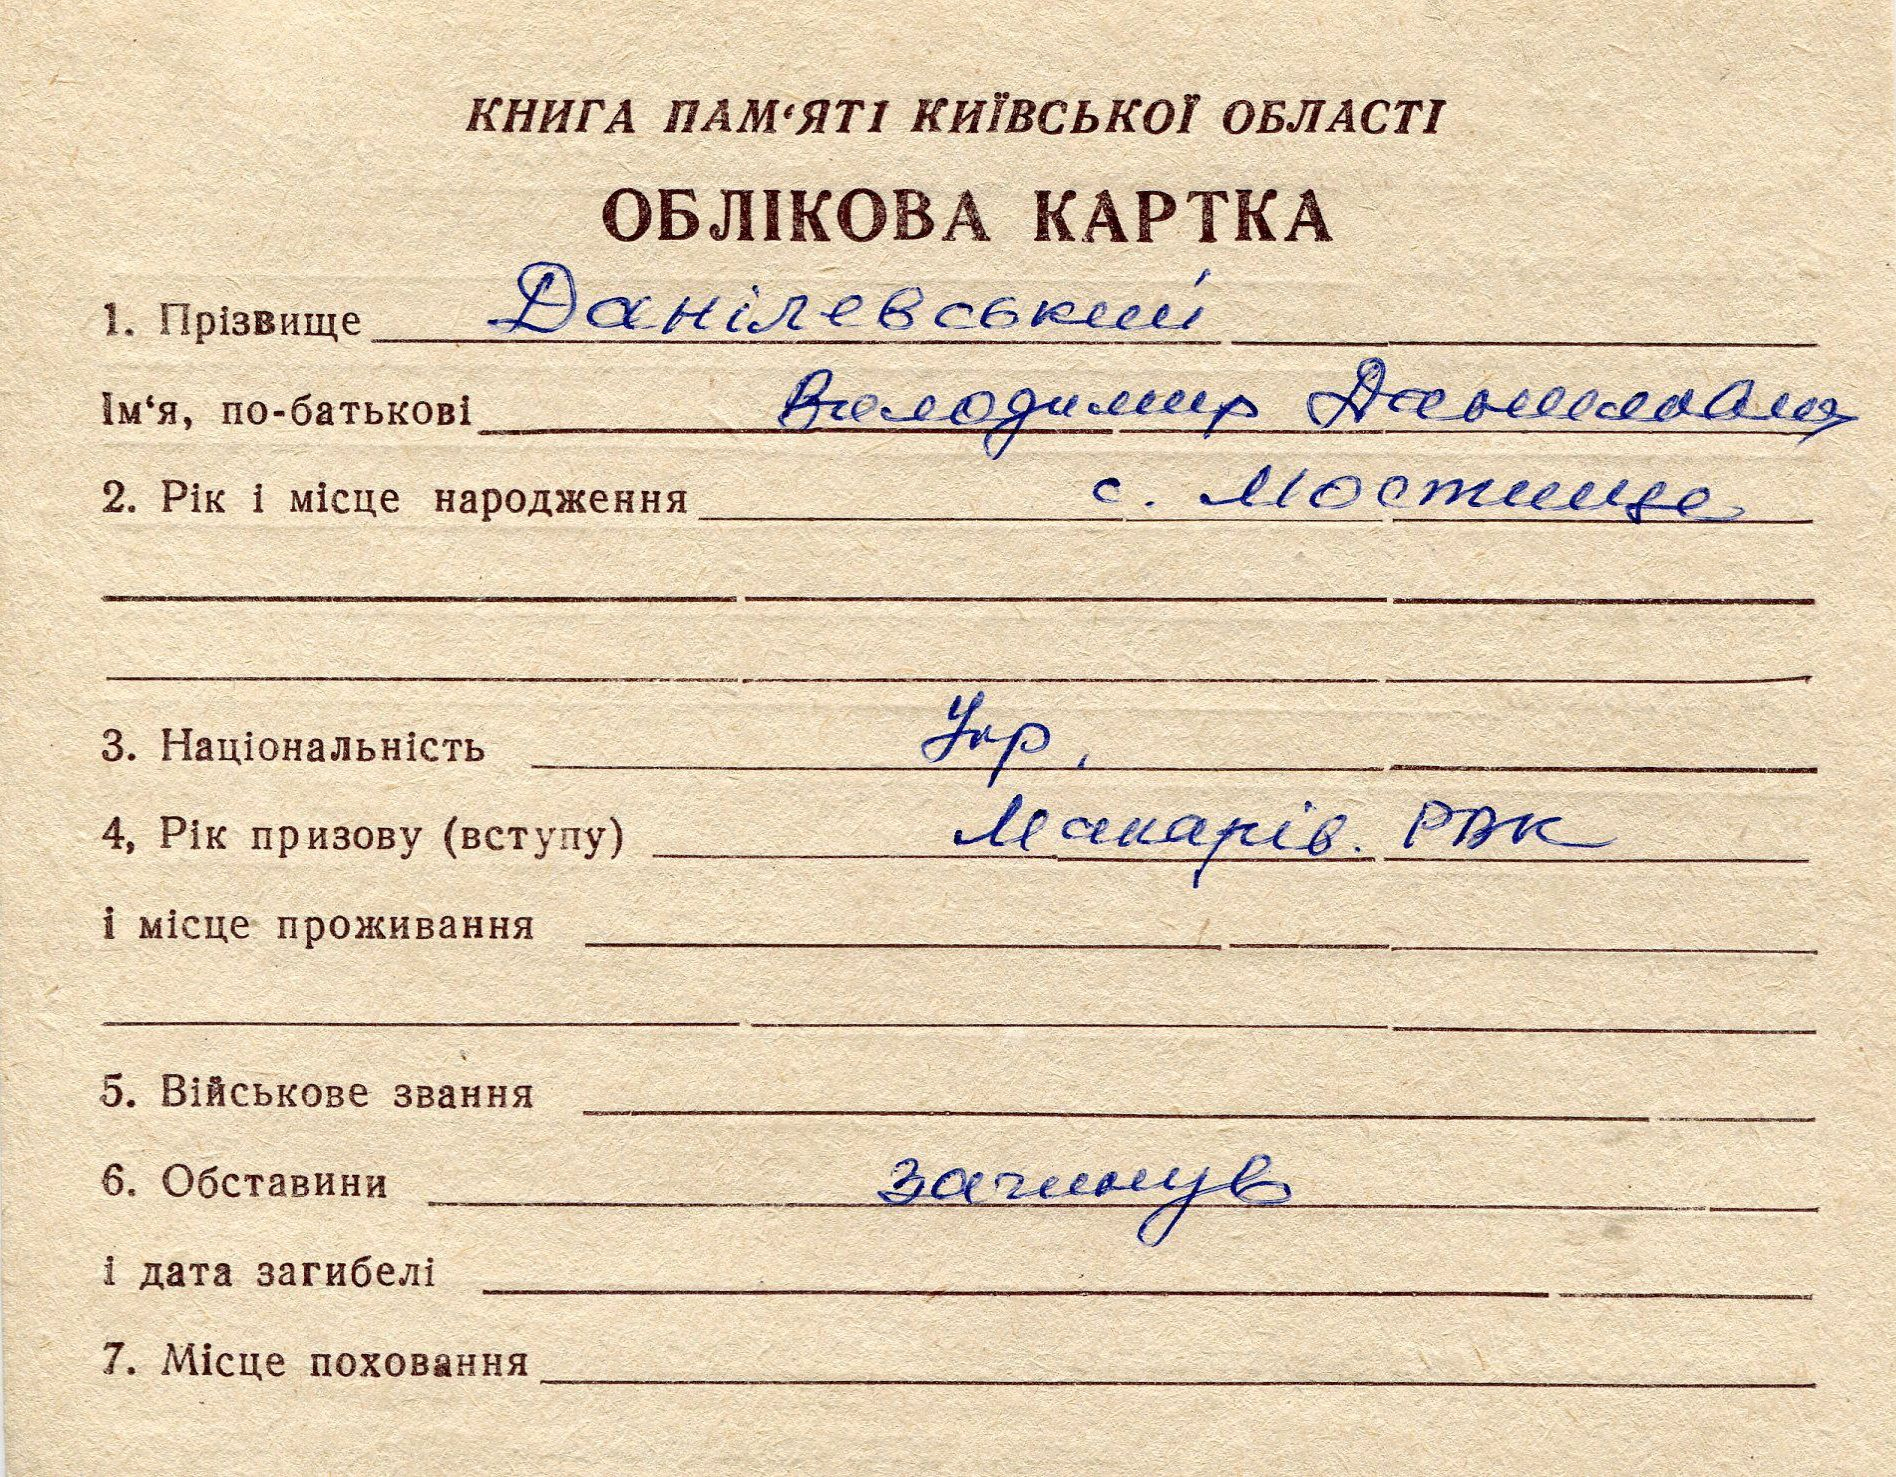 КНИГА ПАМ‘ЯТІ КИЇВСЬКОЇ ОБЛАСТІ
ОБЛІКОВА КАРТКА
1. Прізвище Данілевський
Ім‘я, по-батькові Володимир Данилович
2. Рік і місце народження с. Мостище
3. Національність Укр.
4, Рік призову (вступу) Макарів. РВК
і місце проживання
5. Військове звання
6. Обставини загинув
і дата загибелі
7. Місце поховання